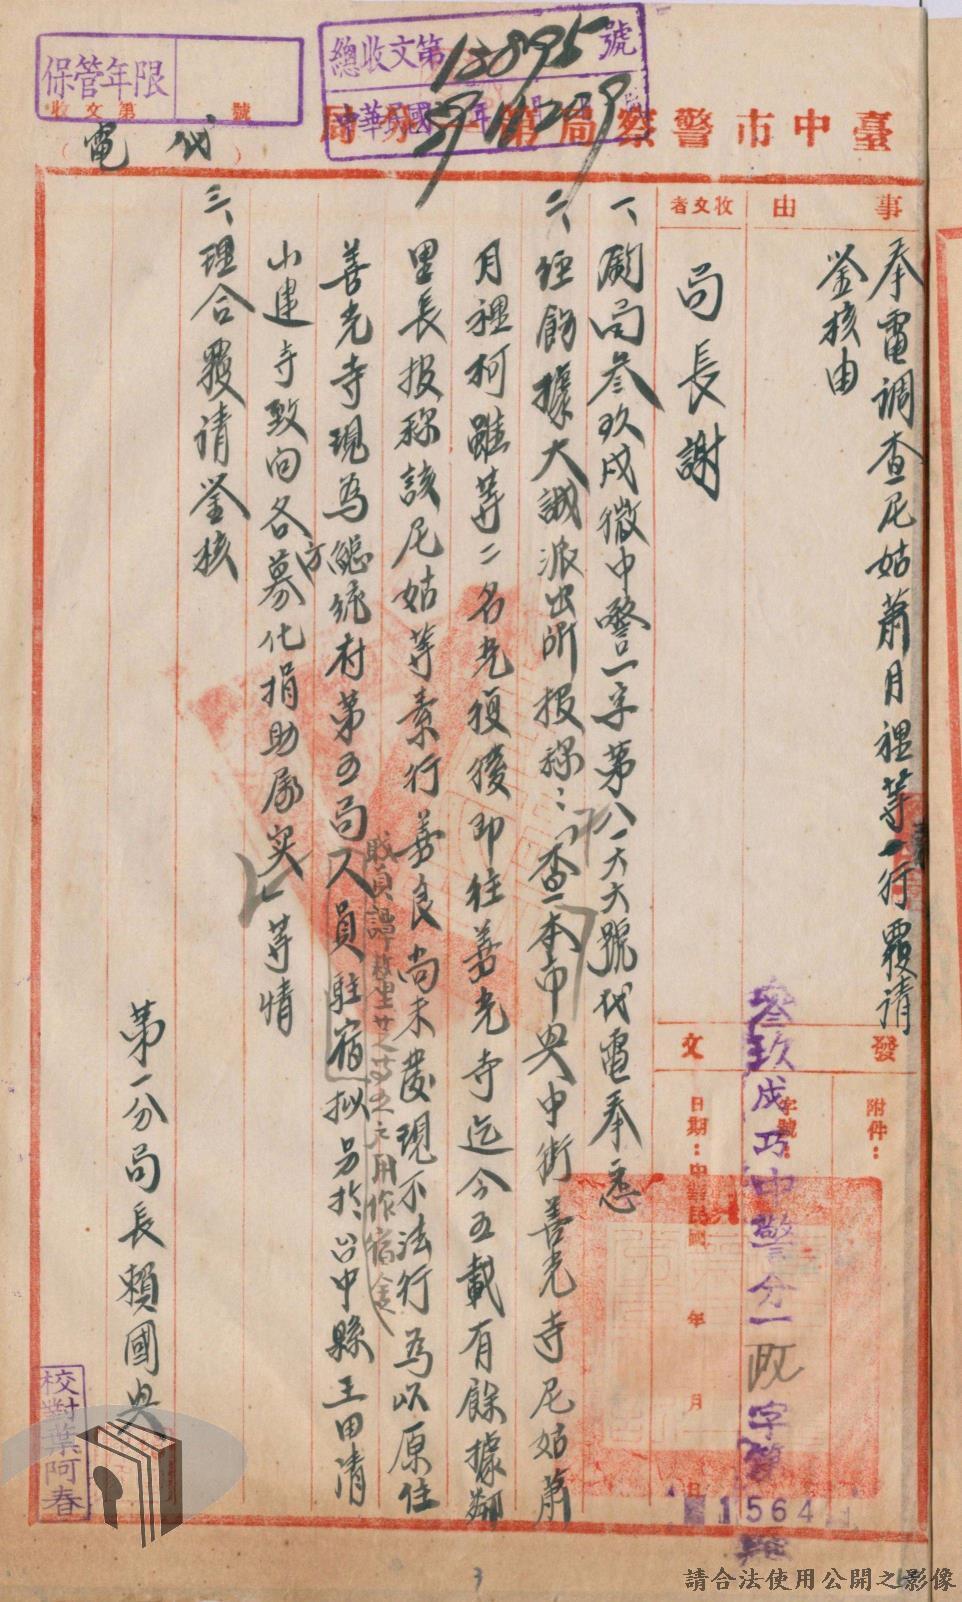 保管年限
總收文第12895號
中華民國39年11月29日
臺中市警察局第一分局
收文第 號
(代電)
事由
奉電調查尼姑蕭月裡等一行覆請
鉴核由
收文者
局長謝
發文
附件：
字號：
日期：中華民國 年 月 日
叁玖戌巧中警分一政字第
1564
號
一、鈞局叁玖戌微中警一字第八六六號代電奉悉
二、經飭據大誠派出所报称：「查本市中央中街善光寺尼姑蕭
月裡柯雖等二名光復後即往善光寺迄今五載有餘據鄰
里長报称該尼姑等素行善良尚未發現不法行為以原住
善光寺現為 第五局人員駐宿拟另於台中縣王田清
用作宿舍
小建寺致向各方募化捐助屬实」等情
三、理合覆请鉴核
第一分局長賴國央
校對葉阿春
3
請合法使用公開之影像